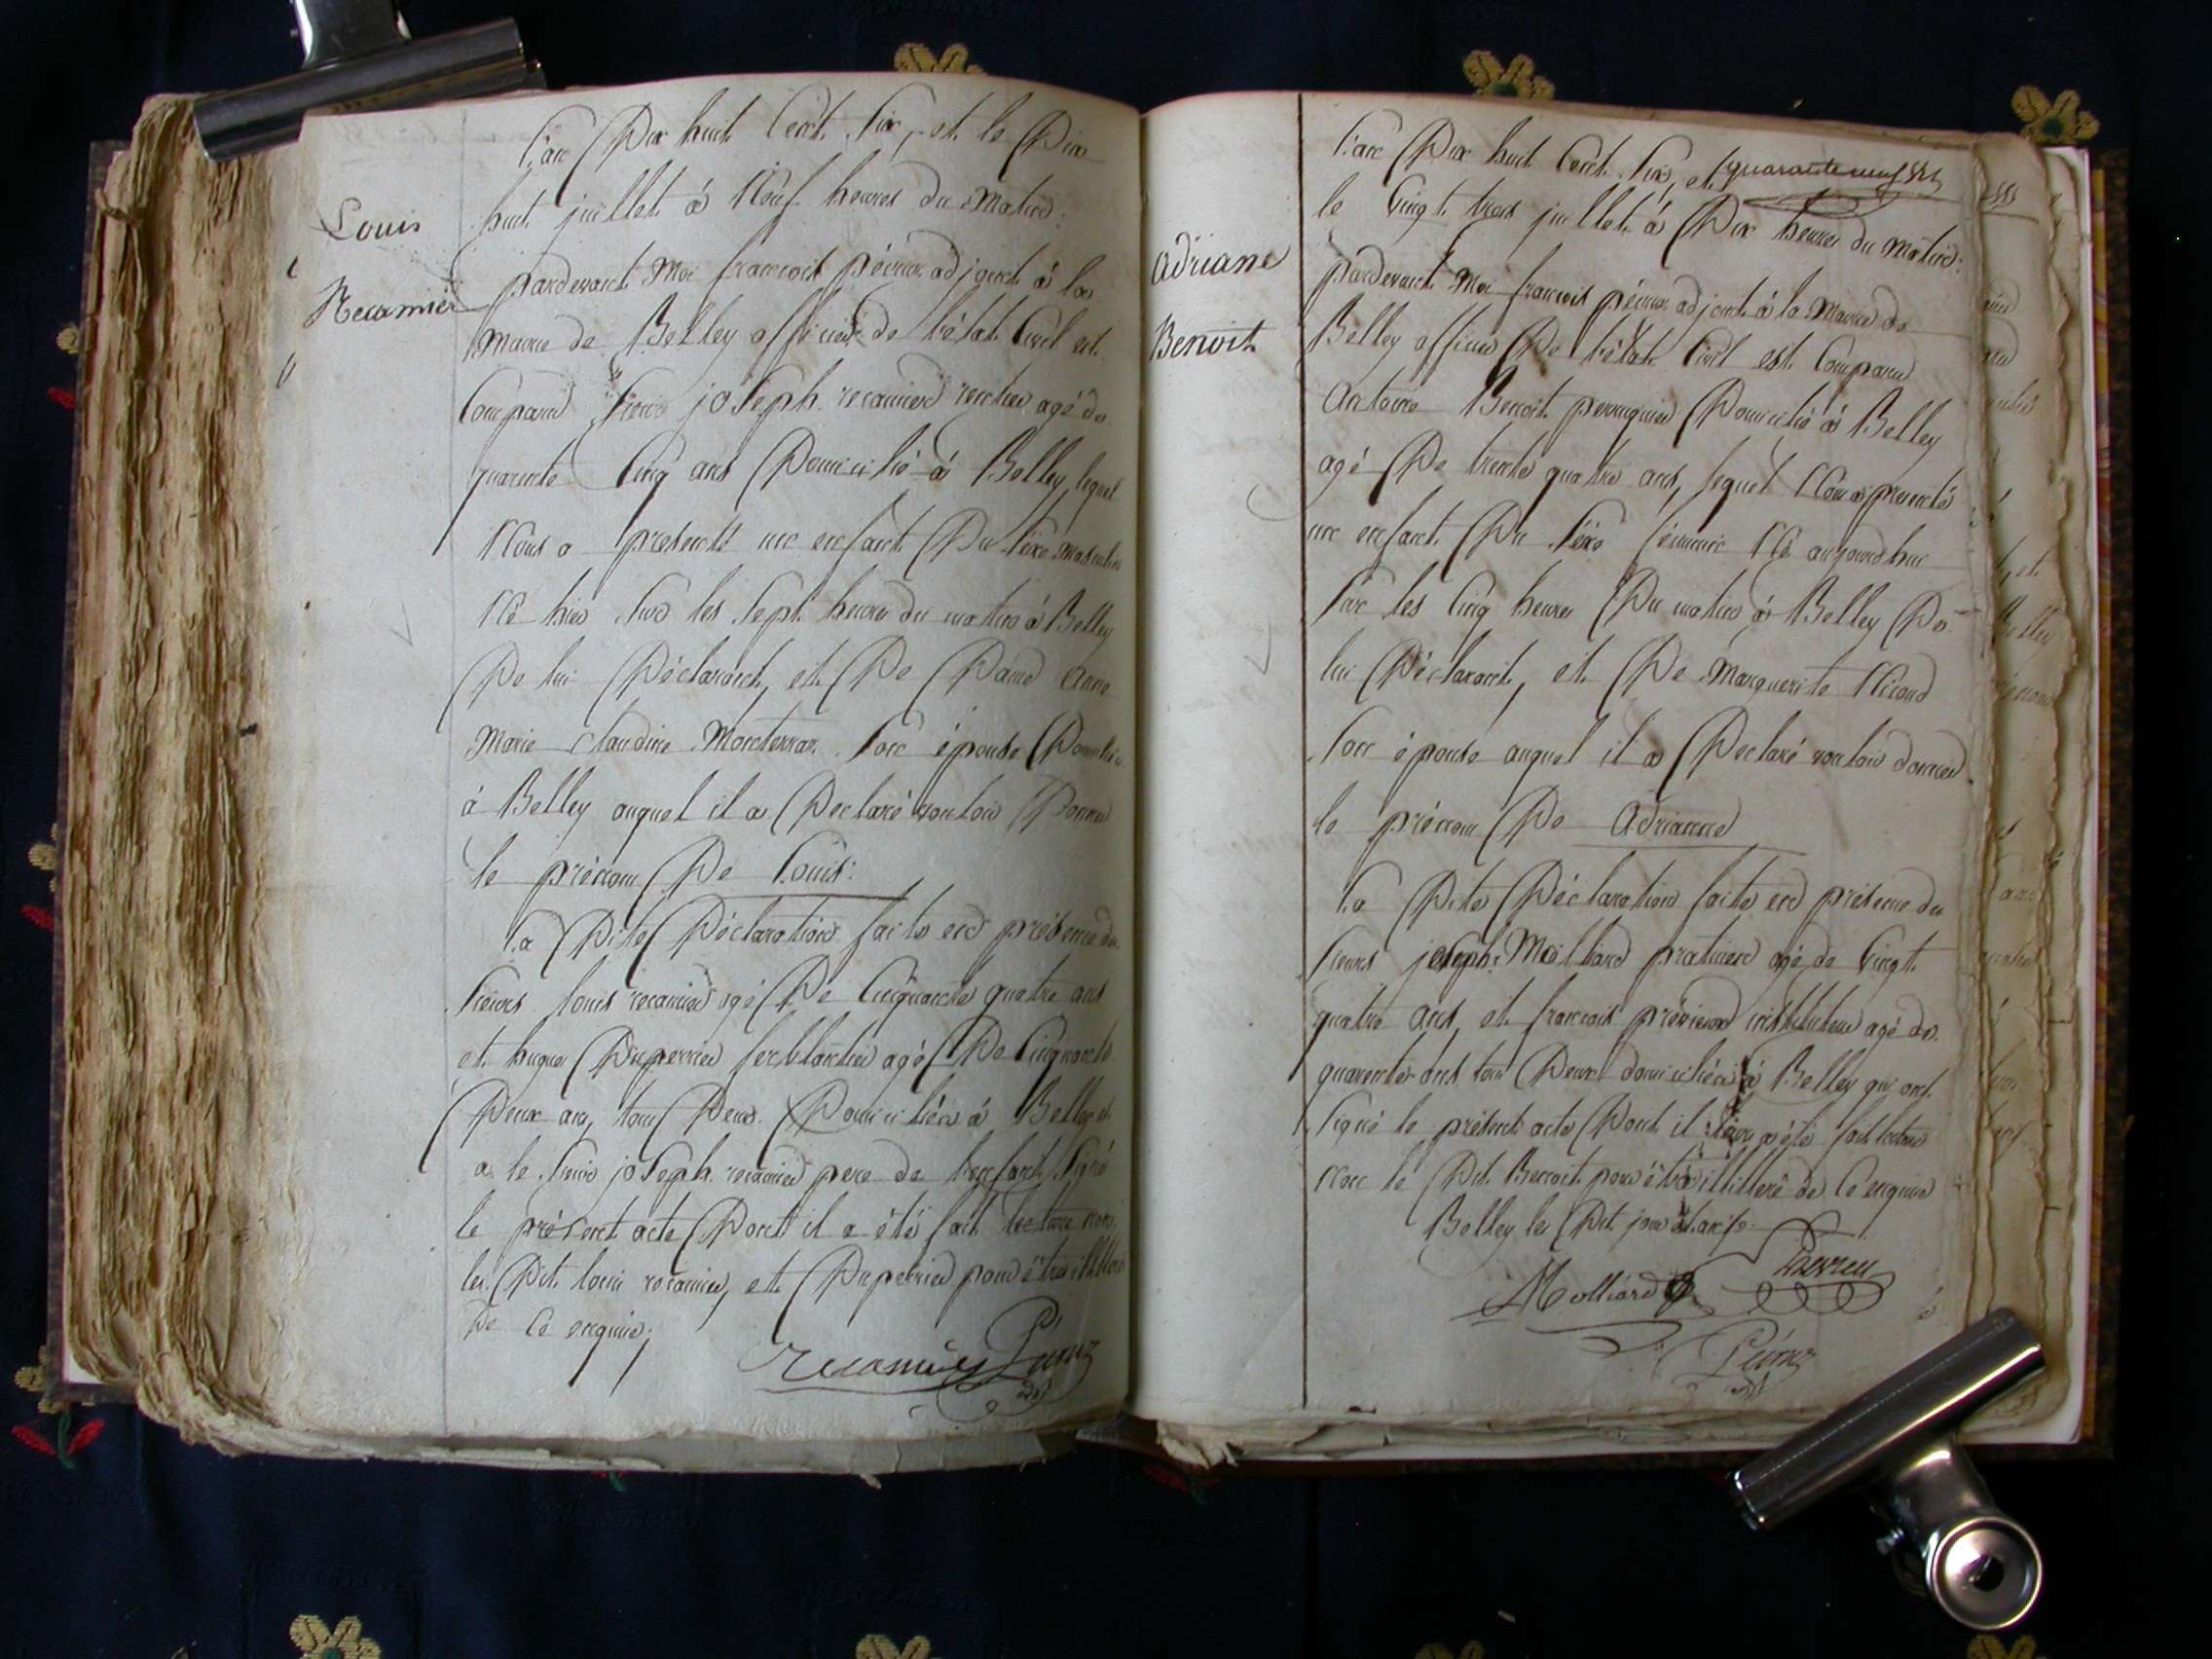 L'an Dix huit Cent Six, et le Dix
huit juillet à Neuf heures du Matin
Louis
Recamier
pardevant Moi francois pécuer adjoint à la
Mairie de Belley officier de l'état Civil est
Comparu Sieur joseph recamier rentier agé de
quarente Cinq ans Domicilié à Belley, lequel
Nous a presenté un enfant Du Séxe Masculin
Né hier Sur les Sept heures du matin à Belley
De lui Déclarant, et De Dame Anne
Marie Claudine Monterrax Son épouse Domiciliés
à Belley auquel il a Declaré vouloir Donner
le prénom De Louis:
La Dite Déclaration faite en présence des
Sieurs louis recamier agé De Cinquante quatre ans
et hugues Duperrier ferblantier agé De Cinquante
Deux ans, tous Deux Domiciliés à Belley et
a le Sieur joseph recamier pere de l'enfant Signé
le présent acte Dont il a été fait lecture non
les Dit louis recamier, et Duperrier pour être illiteré
De Ce enquis;
recamier
L'an Dix huit Cent Six, et quarante neuf
le Vingt trois juillet à Dix heures du Matin:
Adriane
Benoit
pardevant Moi francois pécuer adjoint à la Mairie de
Belley officier De l'état Civil est Comparu
Antoine Benoit perruquier Domicilié à Belley
agé De trente quatre ans, lequel Nous a presenté
un enfant Du Séxe féminin Né aujourd'hui
Sur les Cinq heures Du matin à Belley De
lui Déclarant, et De Marguerite Nicoud
Son épouse auquel il a Declaré vouloir donner
le prénom De Adrianne
La Dite Déclaration faite en présence des
Sieurs joseph Molliard praticien agé de Vingt
quatre ans, et francois instituteur agé de
quarente ans tous Deux domiciliés à Belley qui ont
Signé le présent acte Dont il a été fait lecture
Non le Dit Benoit pour être illiteré de Ce enquis
Belley les Dit jour et an
Molliard